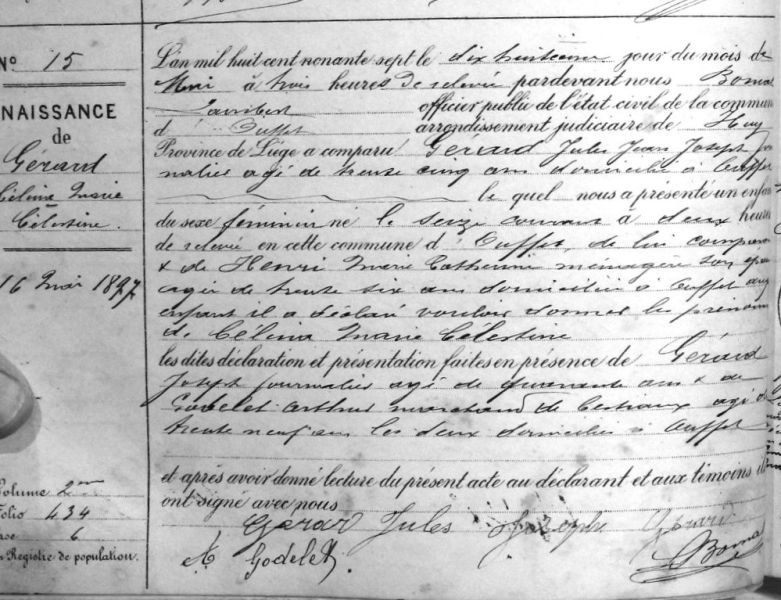 N° 15
NAISSANCE
de
Gérard
Célina Marie
Célestine.
16 Mai 1897
Volume 2me
Folio 434
6
Registre de population.
L'an mil huit cent nonante sept le dix huitième jour du mois de
Mai à trois heures de relevée pardevant nous Boma
Lambert officier public de l'état civil de la commun
d' Ouffet arrondissement judiciaire de Huy
Province de Liége a comparu Gérard Jules Jean Joseph jou
nalier agé de trente cinq ans domicilié à Ouffet
le quel nous a présenté un enfan
du sexe féminin né le seize courant à deux heures
de relevée en cette commune d' Ouffet, de lui comparan
& de Henri Marie Catherine ménagère son épou
agée de trente six ans domiciliée à Ouffet auq
enfant il a déclaré vouloir donner les prénoms
de Célina Marie Célestine
les dites déclaration et présentation faites en présence de Gérard
Joseph journalier agé de quarante ans & de
Godelet Arthur marchand de bestiaux agé de
trente neuf ans les deux domiciliés à Ouffet
et après avoir donné lecture du présent acte au déclarant et aux témoins il
ont signé avec nous
Gerard Jules Joseph Gérard
A Godelet. Boma